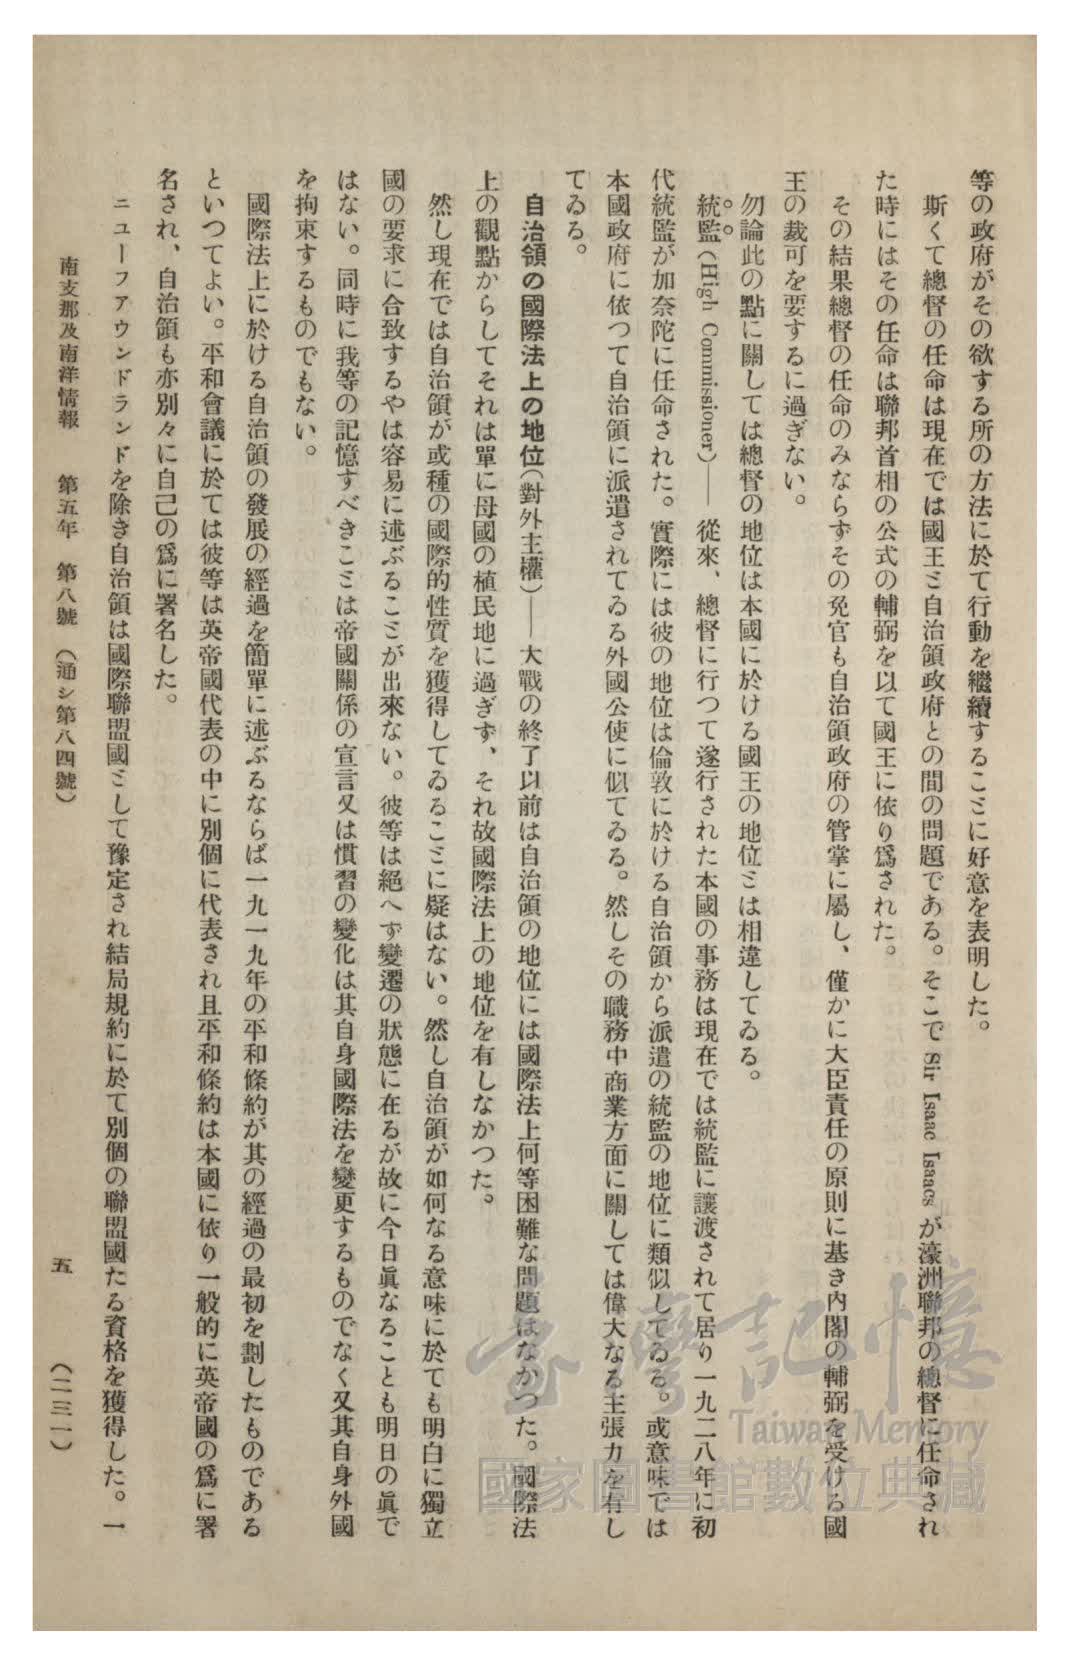 等の政府がその欲する所の方法に於て行動を繼續することに好意を表明した。
斯くて總督の任命は現在では國王と自治領政府との間の問題である。そこで Sir Isaac Isaacs が濠洲聯邦の總督に任命され
た時にはその任命は聯邦首相の公式の輔弼を以て國王に依り爲された。
その結果總督の任命のみならずその免官も自治領政府の管掌に屬し、僅かに大臣責任の原則に基き內閣の輔弼を受ける國
王の裁可を要するに過ぎない。
勿論此の點に關しては總督の地位は本國に於ける國王の地位とは相違してゐる。
統監(High Commissioner)── 從來、總督に行つて遂行された本國の事務は現在では統監に讓渡されて居り一九二八年に初
代統監が加奈陀に任命された。實際には彼の地位は倫敦に於ける自治領から派遣の統監の地位に類似してゐる。或意味では
本國政府に依つて自治領に派遣されてゐる外國公使に似てゐる。然しその職務中商業方面に關しては偉大なる主張力を有し
てゐる。
自治領の國際法上の地位(對外主權)──大戰の終了以前は自治領の地位には國際法上何等困難な問題はなかつた。國際法
上の觀點からしてそれは單に母國の植民地に過ぎず、それ故國際法上の地位を有しなかつた。
然し現在では自治領が或種の國際的性質を獲得してゐることに疑はない。然し自治領が如何なる意味に於ても明白に獨立
國の要求に合致するやは容易に述ぶることが出來ない。彼等は絕へず變遷の狀態に在るが故に今日眞なることも明日の眞で
はない。同時に我等の記憶すべきことは帝國關係の宣言又は慣習の變化は其自身國際法を變更するものでなく又其自身外國
を拘束するものでもない。
國際法上に於ける自治領の發展の經過を簡單に述ぶるならば一九一九年の平和條約が其の經過の最初を劃したものである
といつてよい。平和會議に於ては彼等は英帝國代表の中に別個に代表され且平和條約は本國に依り一般的に英帝國の爲に署
名され、自治領も亦別々に自己の爲に署名した。
ニユーフアウンドランドを除き自治領は國際聯盟國として豫定され結局規約に於て別個の聯盟國たる資格を獲得した。一
南支那及南洋情報 第五年 第八號 (通シ第八四號) 五 (二三一)
臺灣記憶
Taiwan Memory
國家圖書館數位典藏